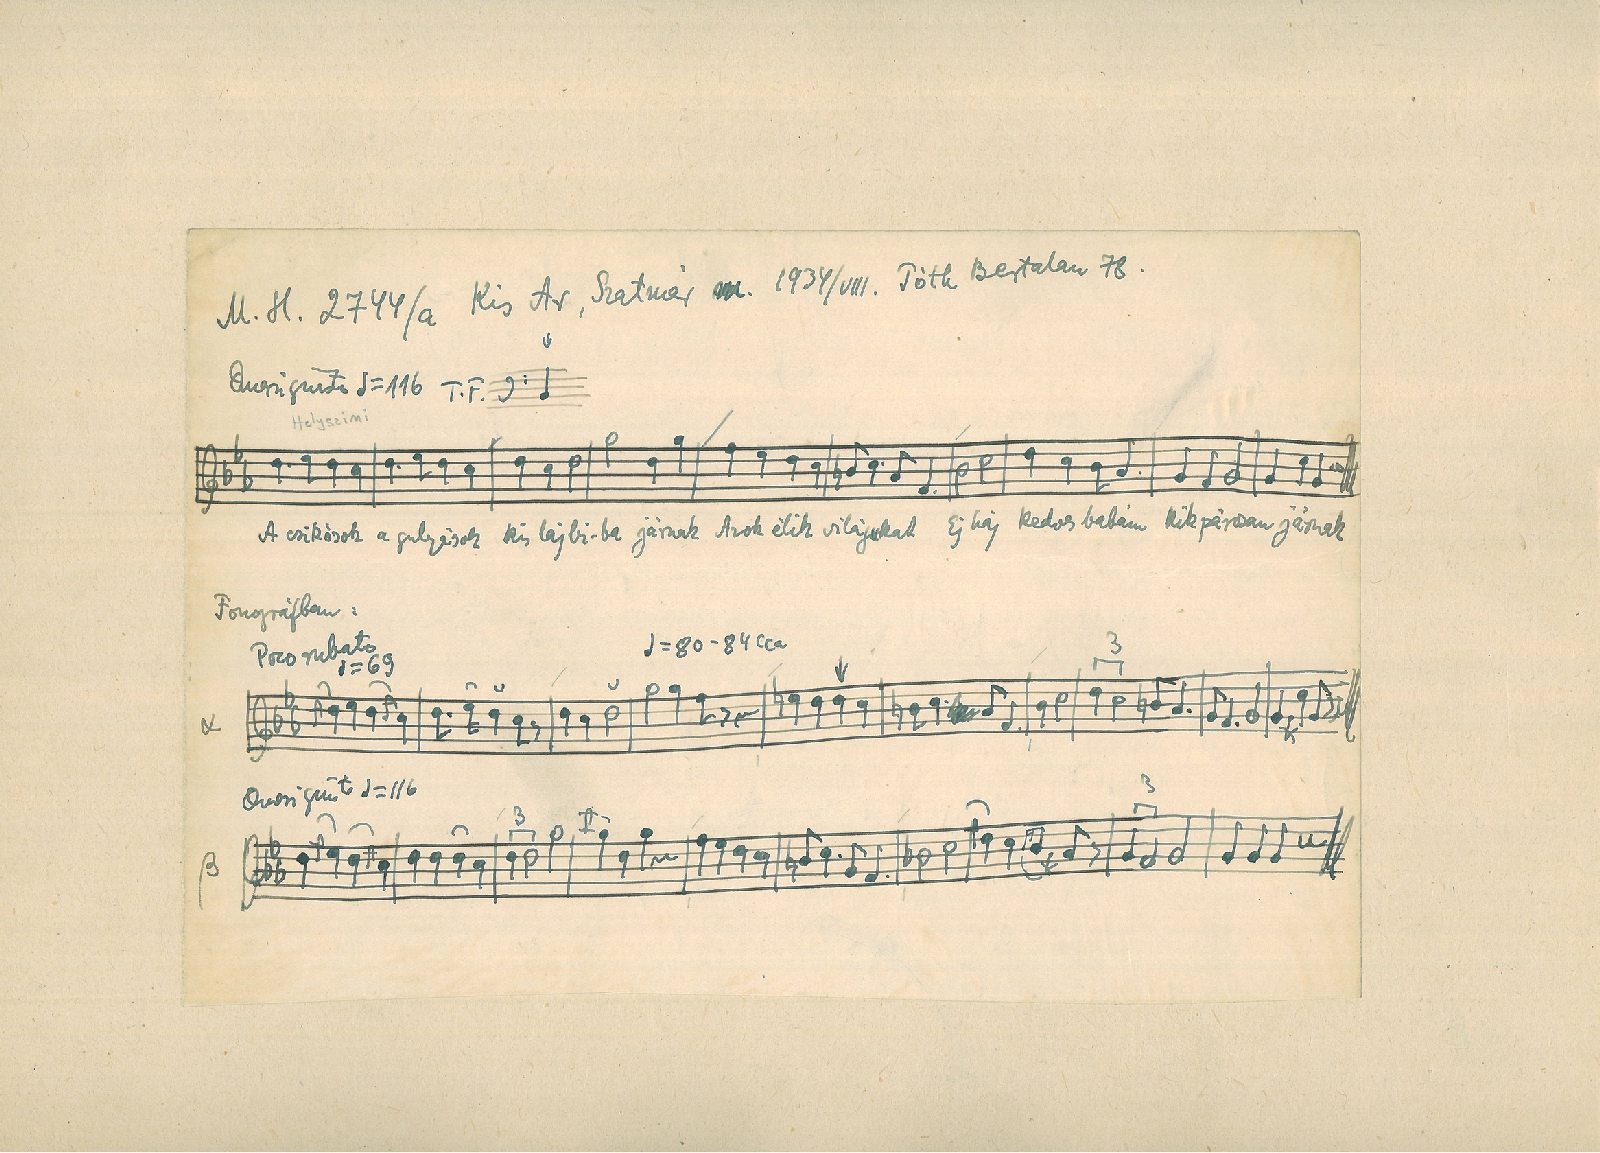 M. H. 2744/a Kis Ar, Szatmár m. 1934/VIII. Tóth Bertalan 78.
Quasi giusto ♩=116 T.F.
Helyszini
A csikósok a gulyások kis lajbi-ba járnak Azok élik világukat Ej haj kedves babám kik párosan járnak
Fonográfban:
Poco rubato
♩=69 ♩=80-84 cca
3
α
Quasi giusto ♩=116
3
3 II
β